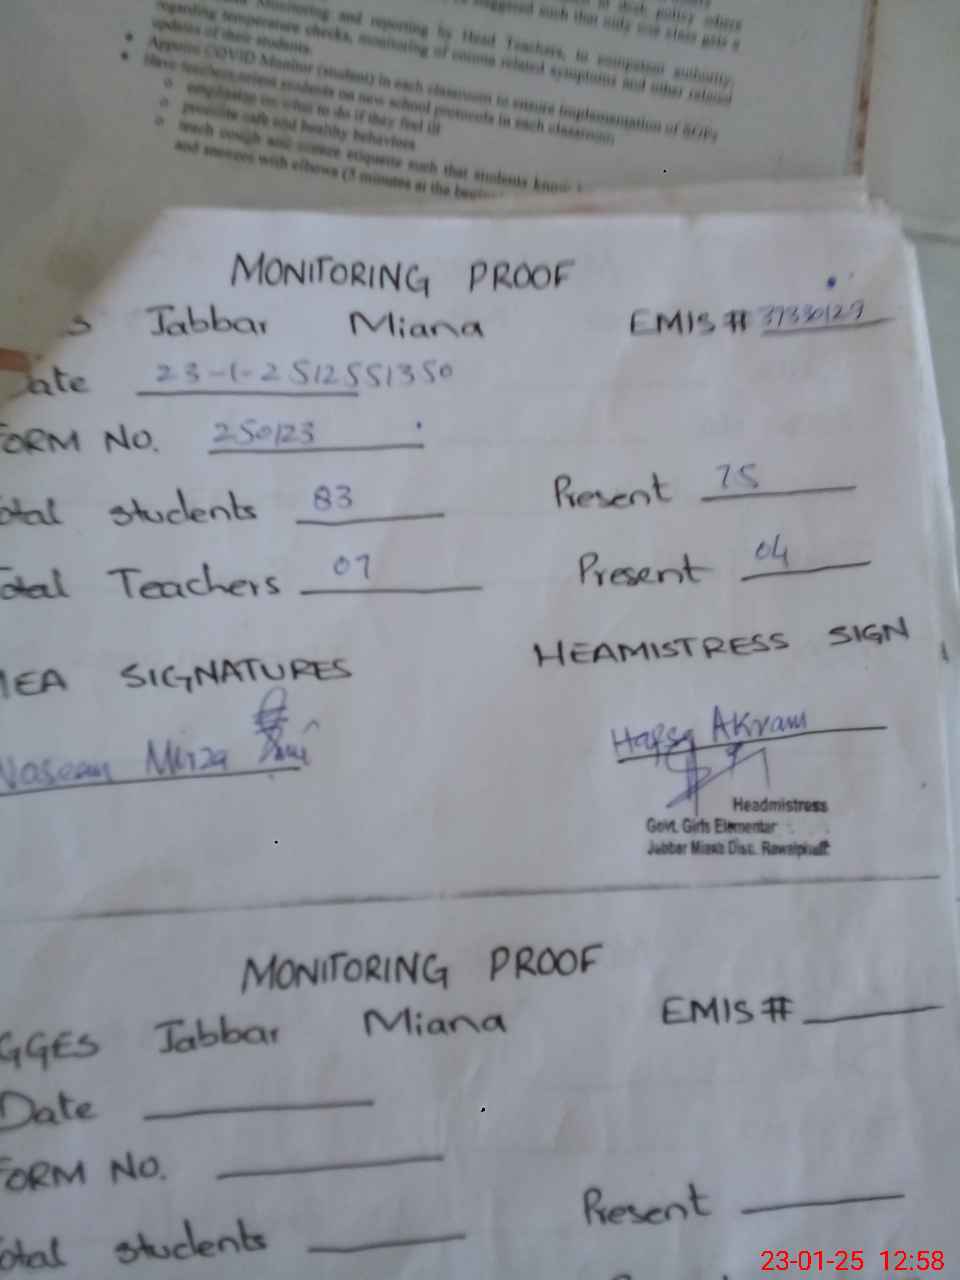 Monitoring and reporting by Head Teachers, to competent authority,
regarding temperature checks, monitoring of corona related symptoms and other related
updates of their students.
• Appoint COVID Monitor (student) in each classroom to ensure implementation of SOPs
• Have teachers orient students on new school protocols in each classroom
o emphasize on what to do if they feel ill
o promote safe and healthy behaviors
o teach cough and sneeze etiquette such that students know
and sneezes with elbows (5 minutes at the
MONITORING PROOF
S Jabbar Miana EMIS # 37330129
Date 23-1-25 12551350
FORM NO. 250123
otal students 83 Present 75
otal Teachers 07 Present 04
MEA SIGNATURES HEAMISTRESS SIGN
Naseem Mirza Hafsa Akram
Headmistress
Govt. Girls Elementar
Jabber Miana Disc. Rawalpindi
MONITORING PROOF
GGES Jabbar Miana EMIS #
Date
FORM NO.
otal students Present
23-01-25 12:58